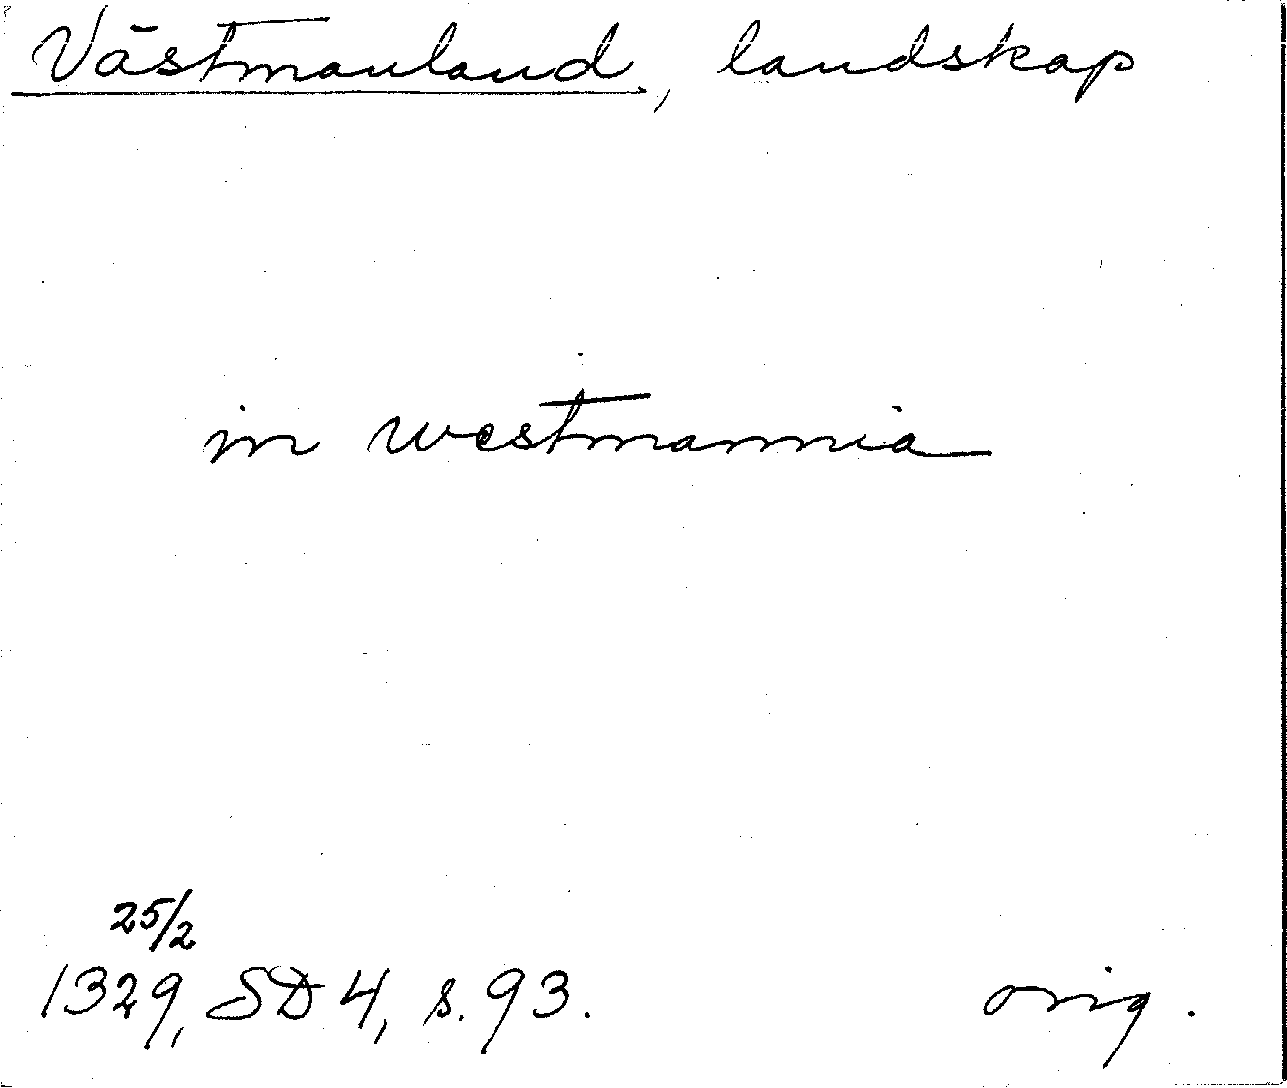 Västmanland, landskap
in westmannia
25/2
1329, SD 4, s. 93. orig.